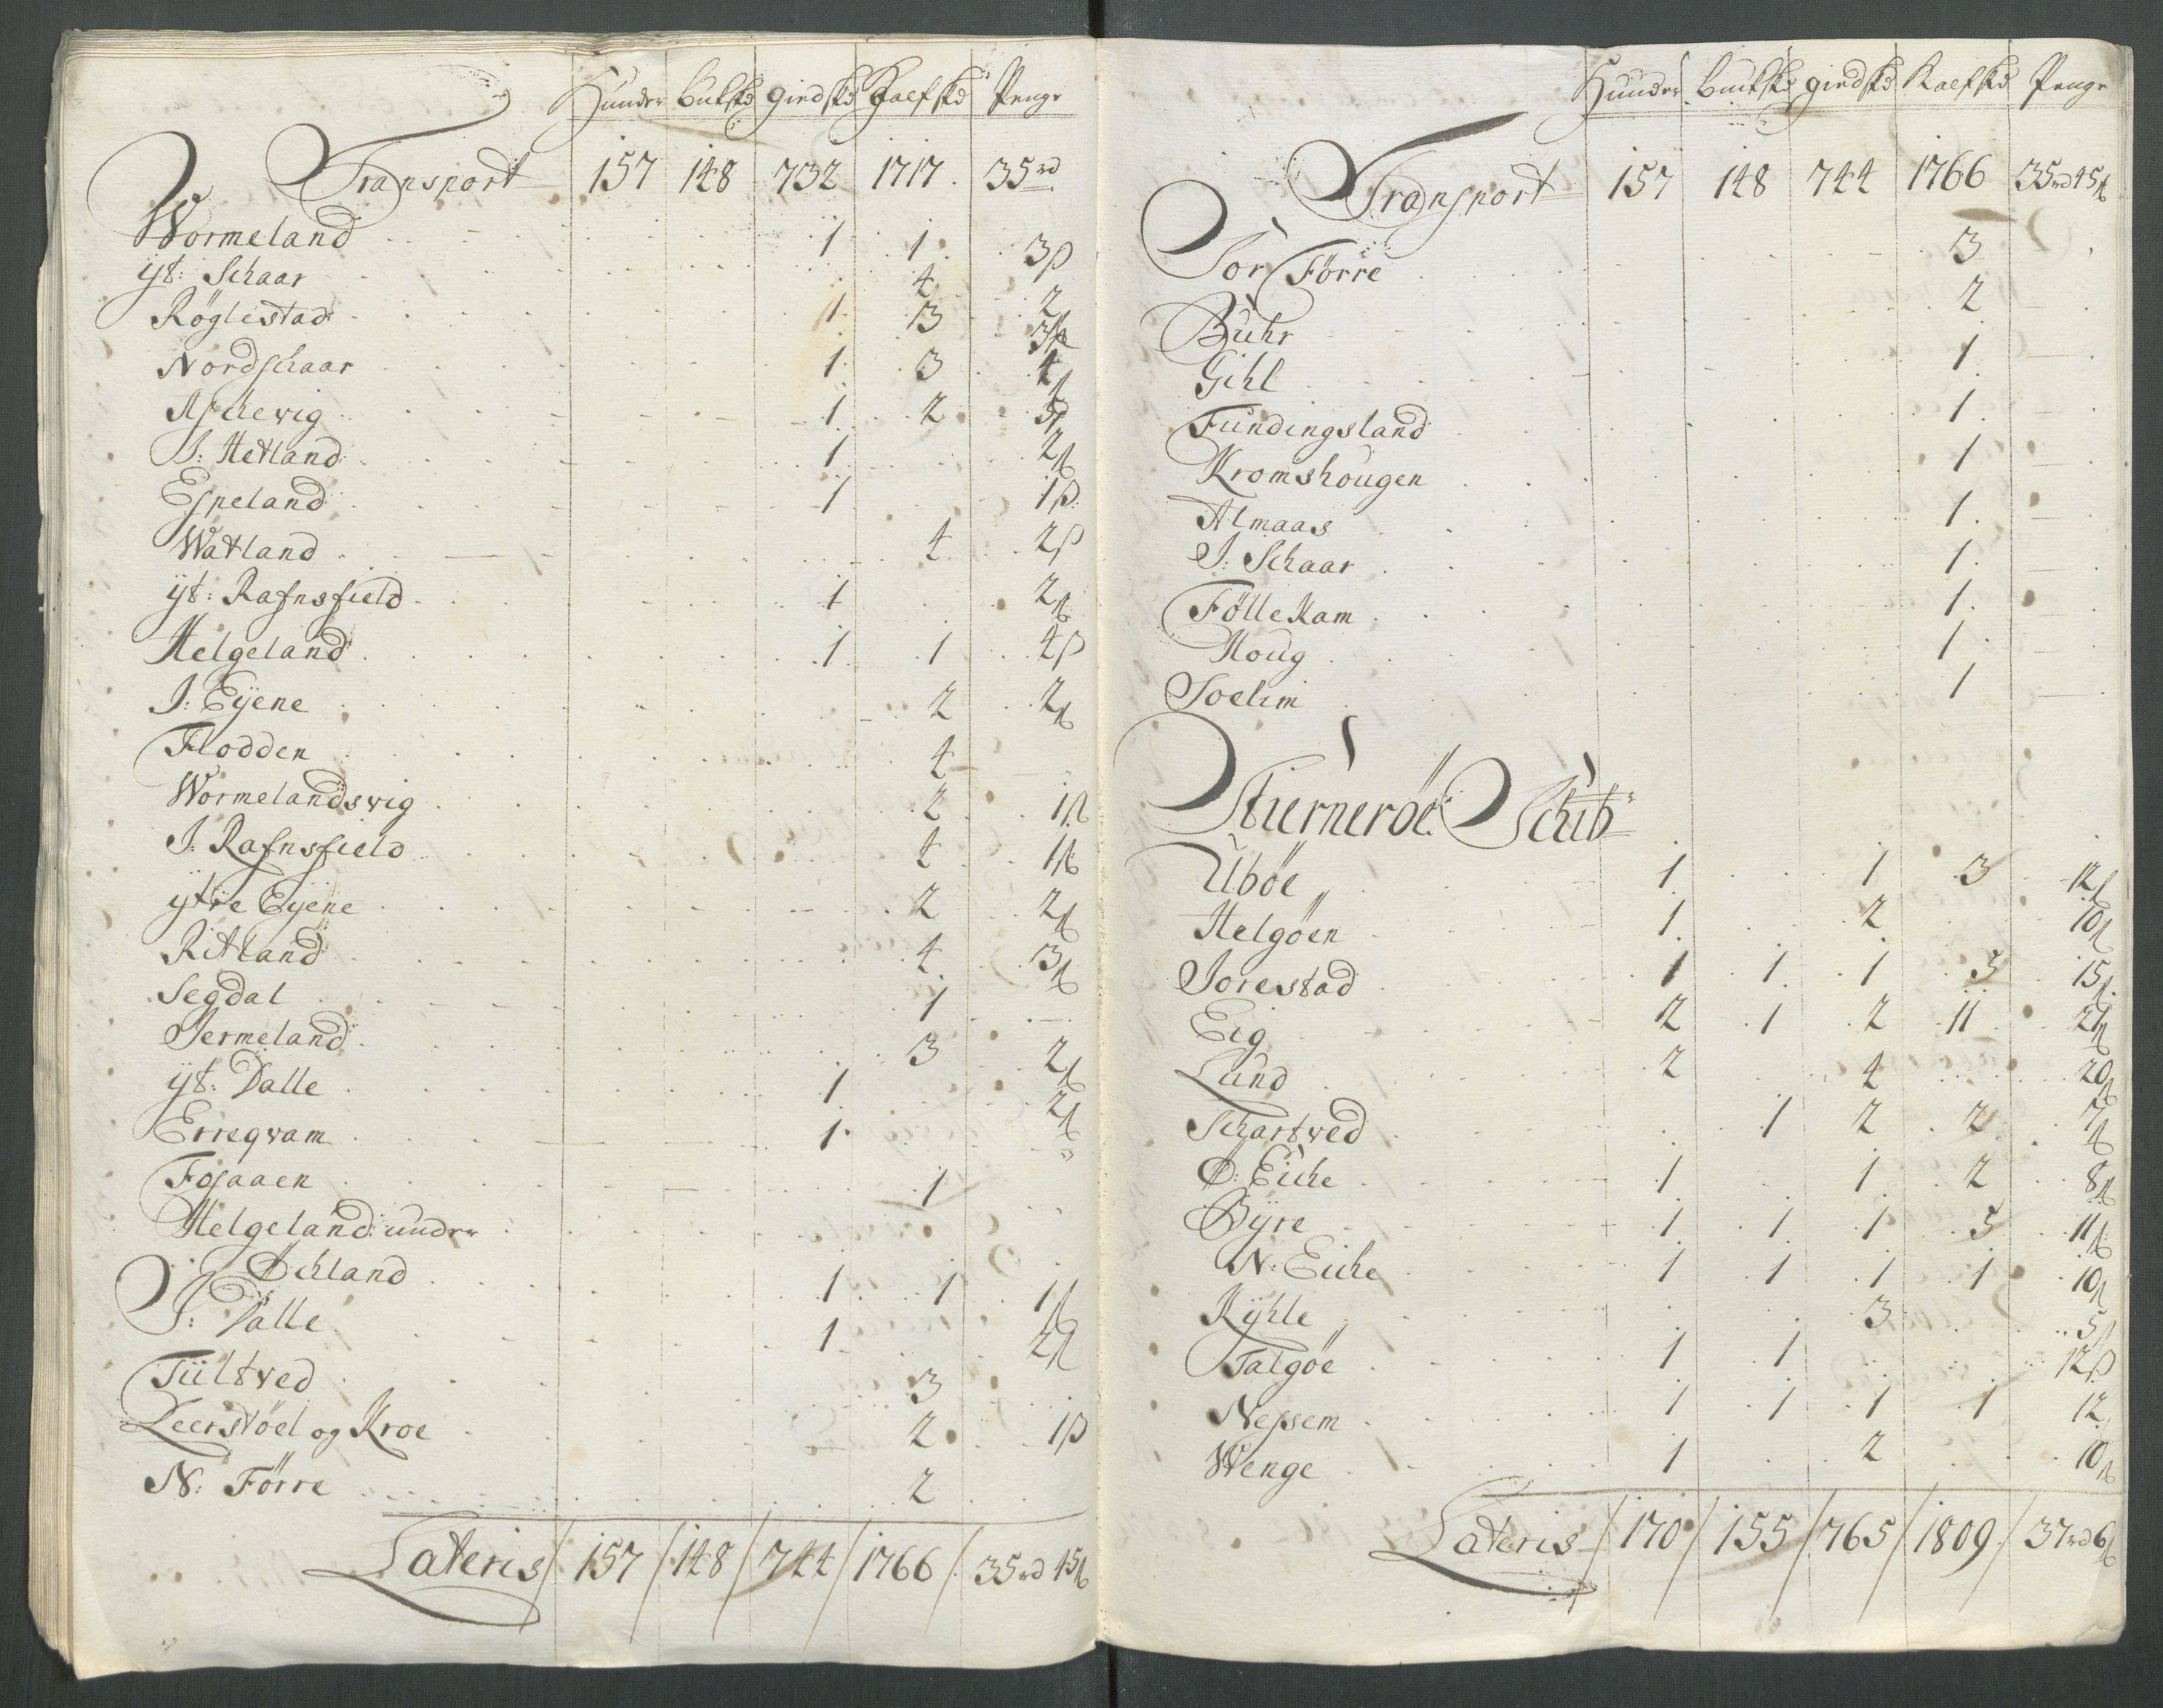 Huuder Buckskd giedskd Kalfskd Penge
Transport 157 148 732 1717. 35rd
Wormeland 1 1 3ß
yt: Schaar 4 2ß
Röglestad 1 3 3ß
Nordschaar 1 3 4ß
Aschevig 1 2 3ß
I: Hetland 1 2ß
Espeland 1 1ß
Watland 4 2ß
yt: Rafnsfield 1 2ß
Helgeland 1 1 4ß
I: Eyene 2 2ß
Flodden 4
Wormelandsvig 2 1ß
I: Rafnsfield 4 1ß
ytre Eyene 2 2ß
Ritland 4 3ß
Segdal 1
Jermeland 3 2ß
yt: Dalle 1 2ß
Erreqvam 1
Fosaaen 1
Helgeland under
Öchland 1 1 1ß
I: Dalle 1 2ß
Tültved 3
Leerstöel og Kroe 2 1ß
N: Förre 2
Lateris 157 148 744 1766 35rd 45ß
Huuder Buckskd giedskd Kalfskd Penge
Transport 157 148 744 1766 35rd 45ß
Sör Förre 3
Buhr 2
Gihl 1
Fundingsland 1
Kromshougen 1
Almaas 1
I: Schaar 1
Föllekam 1
Houg 1
Soelim 1
Stierneröe Schib
Uböe 1 1 3 12ß
Helgöen 1 2 10ß
Jorestad 1 1 1 3 15ß
Eig 2 1 2 11 21ß
Lund 2 4 20ß
Schartved 1 2 2 7ß
Ö: Eiche 1 1 2 8ß
Byre 1 1 1 3 11ß
N: Eiche 1 1 1 1 10ß
Kyhle 3 5ß
Talgöe 1 1 12ß
Nessem 1 1 1 1 12
Wenge 1 2 10ß
Lateris 170 155 765 1809 37rd 6ß